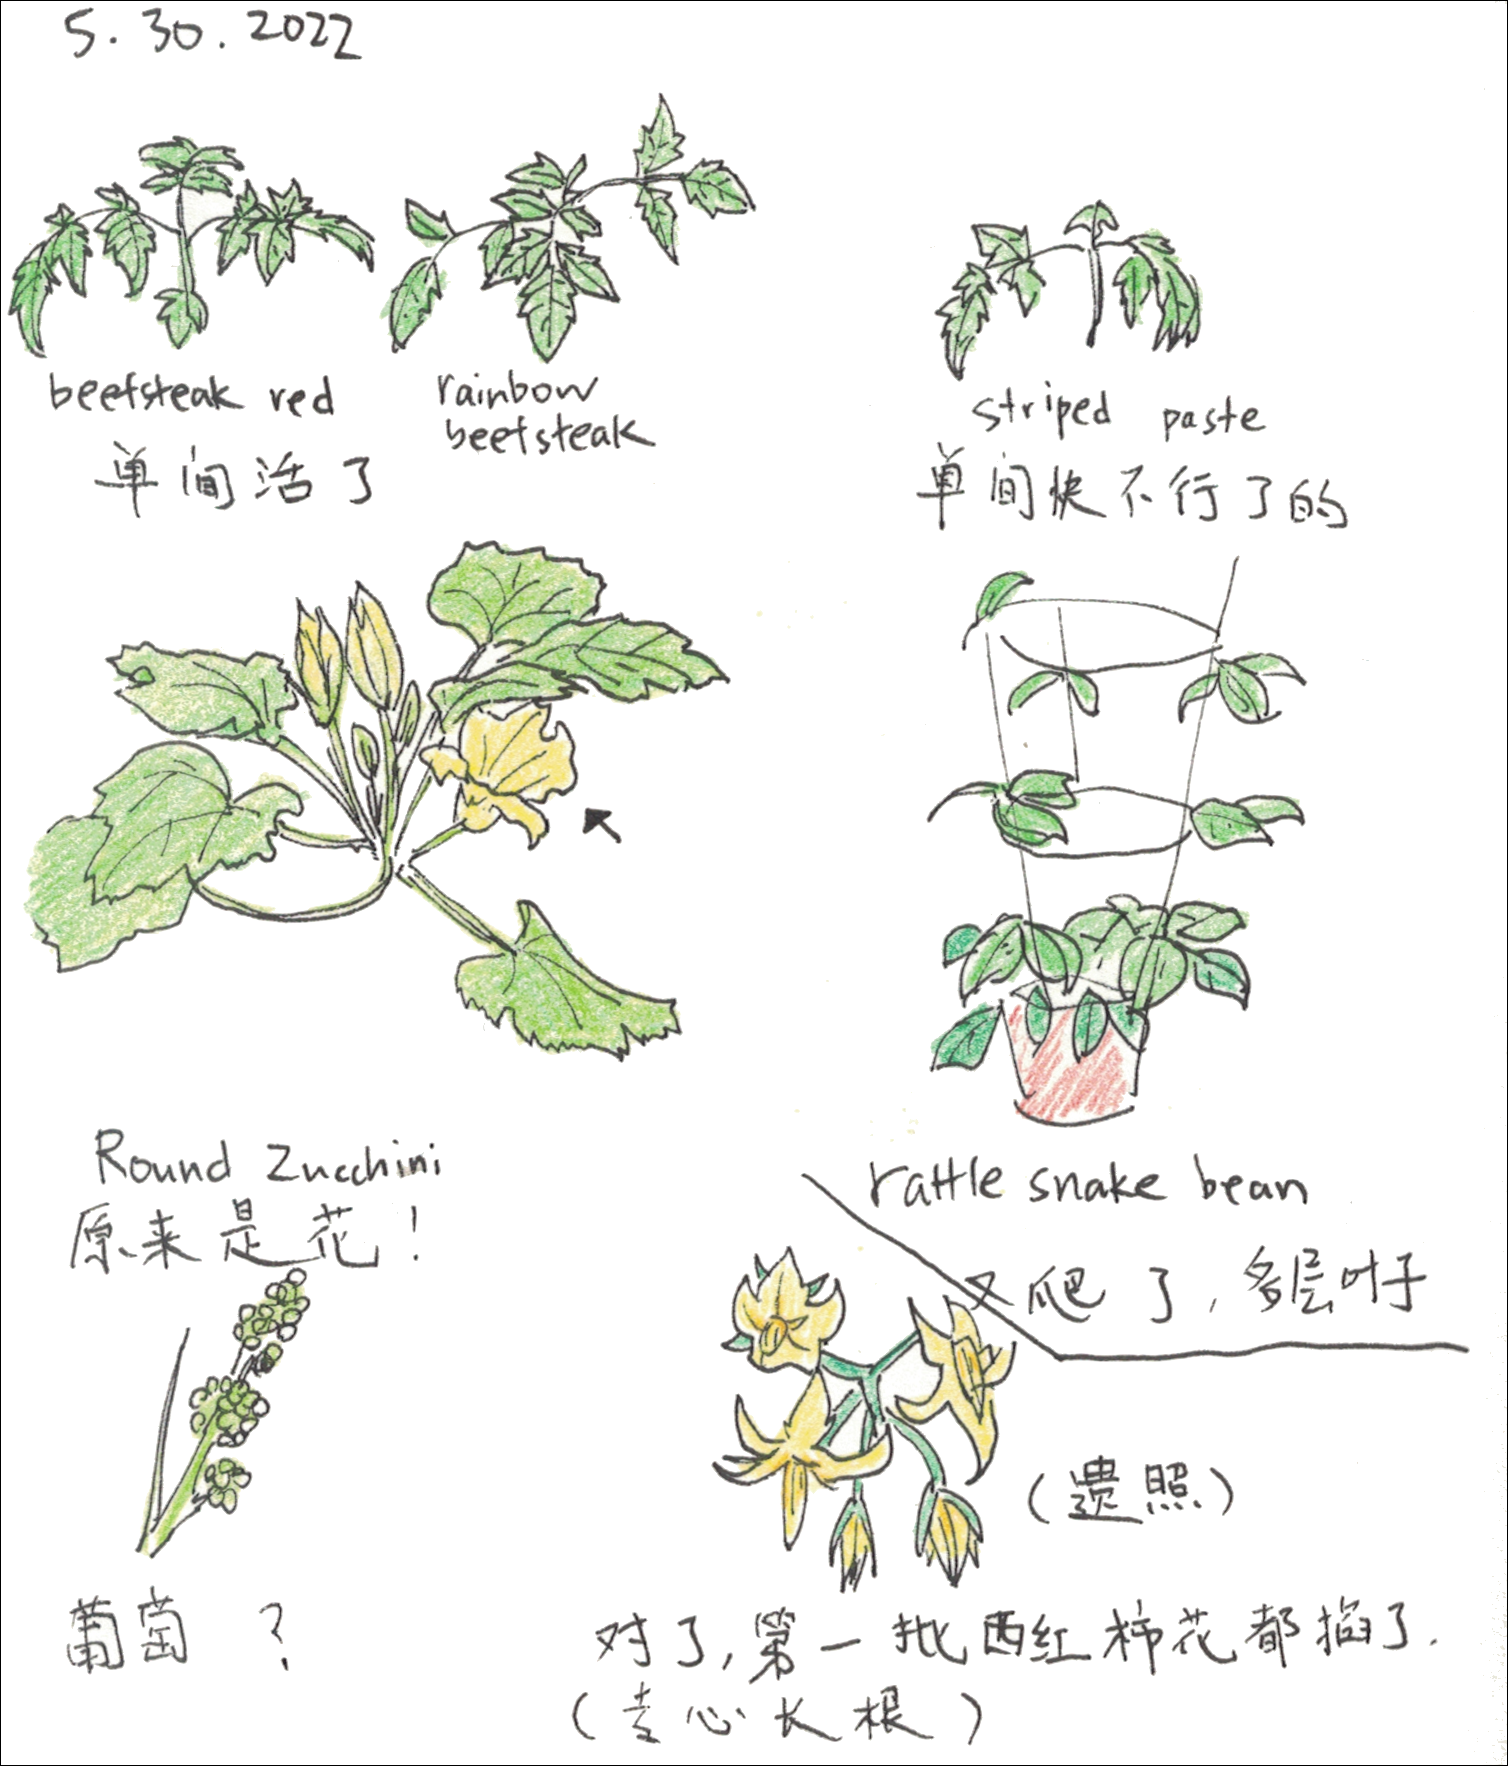 5.30.2022
beefsteak red
单间活了
rainbow
beefsteak
striped paste
单间快不行了的
Round Zucchini
原来是花！
rattle snake bean
又爬了，多层叶子
葡萄？
（遗照）
对了，第一批西红柿花都掐了.
（专心长根）